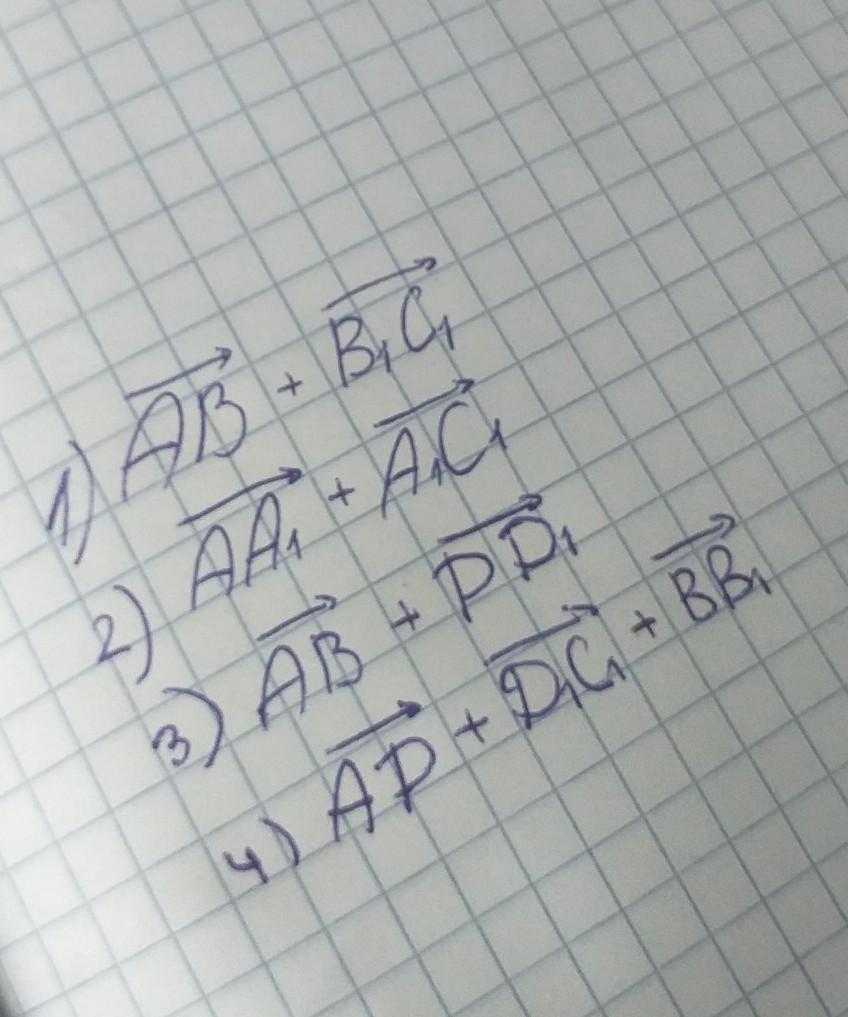 1) \overrightarrow{AB} + \overrightarrow{B₁C₁}
2) \overrightarrow{AA₁} + \overrightarrow{A₁C₁}
3) \overrightarrow{AB} + \overrightarrow{DD₁}
4) \overrightarrow{AD} + \overrightarrow{D₁C₁} + \overrightarrow{BB₁}